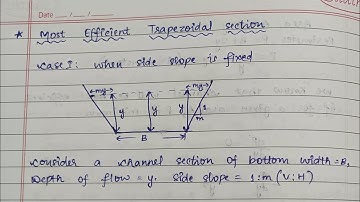 Date __/__/__
* Most Efficient Trapezoidal section
Case I: when side slope is fixed
←my→ ←my→
y y y 1
m
B
Consider a channel section of bottom width = B,
Depth of flow = y. Side slope = 1:m (V:H)